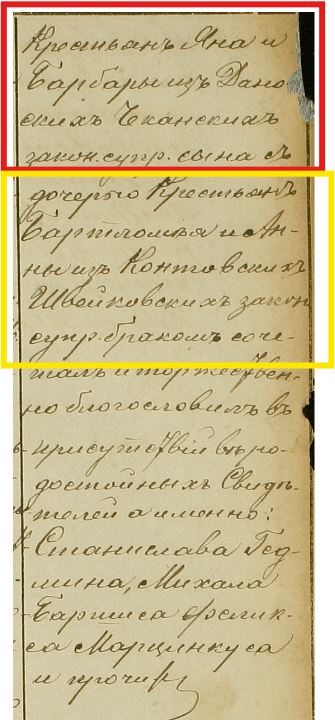 Крестьянъ Яна и
Барбары изъ Дано
скихъ Чеканскихъ
закон. супр. сына съ
дочерью Крестьянъ
Бартломѣя и Ан-
ны изъ Контовскихъ
Швейковскихъ закон
супр. бракомъ соче-
талъ и торжествен-
но благословилъ въ
присутствіи вѣро-
достойныхъ Свидѣ-
телей а именно:
Станислава Гед-
мина, Михала
Бартиса Фелик-
са Марцинкуса
и прочих